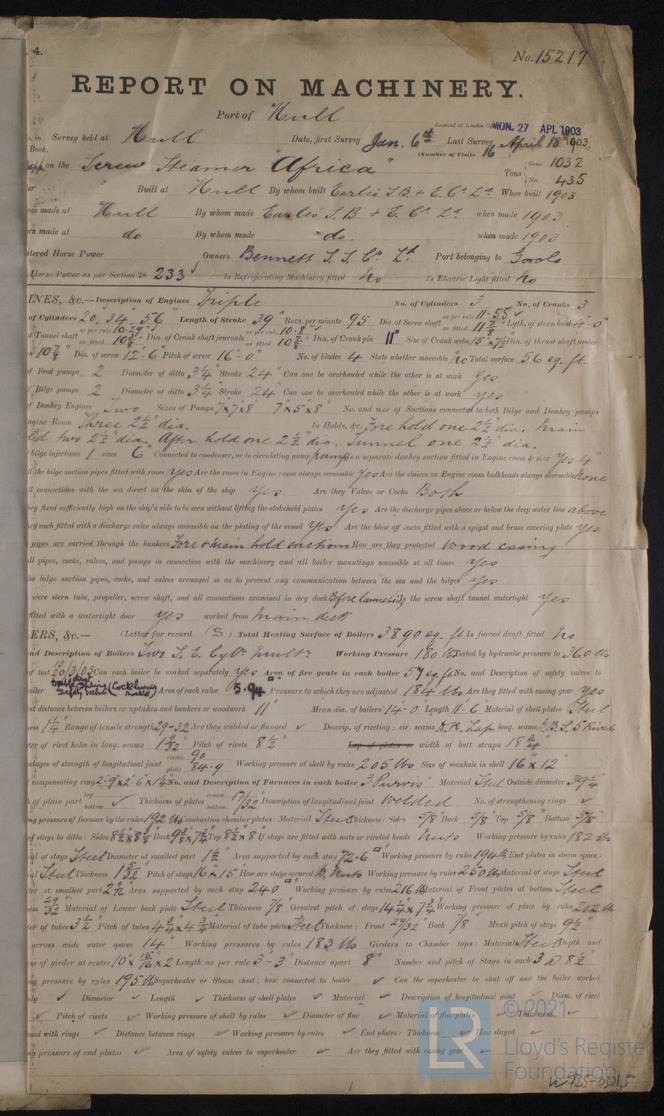 4.
No. 15217
REPORT ON MACHINERY.
Port of Hull
Received at London MON. 27 APL 1903
in Survey held at Hull Date, first Survey Jan. 6th Last Survey April 18th 1903
Book. (Number of Visits 16
on the Screw Steamer "Africa" Tons Gross 1032 Net 435
Built at Hull By whom built Earle's S.B. & E. Co. Ld When built 1903
made at Hull By whom made Earle's S.B. & E. Co. Ld when made 1903
made at do By whom made do. when made 1903
tered Horse Power Owners Bennett S.S. Co. Ld Port belonging to Goole
Horse Power as per Section 28 233 Is Refrigerating Machinery fitted No Is Electric Light fitted No
INES, &c.—Description of Engines Triple No. of Cylinders 3 No. of Cranks 3
of Cylinders 20" 34" 56" Length of Stroke 39" Revs. per minute 95 Dia. of Screw shaft as per rule 11.55 as fitted Lgth. of stern bush 4'-0"
of Tunnel shaft as per rule 10.29 as fitted Dia. of Crank shaft journals as per rule 10.8 as fitted Dia. of Crank pin 11" Size of Crank webs Dia. of thrust shaft under
Dia. of screw 12'-6 Pitch of screw 16'-0" No. of blades 4 State whether moveable No Total surface 56 sq. ft.
of Feed pumps 2 Diameter of ditto 3 1/4" Stroke 24" Can one be overhauled while the other is at work Yes
f Bilge pumps 2 Diameter of ditto 3 1/4" Stroke 24" Can one be overhauled while the other is at work Yes
f Donkey Engines Two Sizes of Pumps 7"x7"x8" 7"x5"x8" No. and size of Suctions connected to both Bilge and Donkey pumps
ngine Room Three 2 1/2" dia. In Holds, &c. Fore hold one 2 1/2" dia. Main
two 2 1/2" dia. After hold one 2 1/2" dia. Tunnel one 2 1/2" dia.
bilge injections 1 sizes 6" Connected to condenser, or to circulating pump pump Is a separate donkey suction fitted in Engine room & size Yes 4"
ll the bilge suction pipes fitted with roses Yes Are the roses in Engine room always accessible Yes Are the sluices on Engine room bulkheads always accessible None
ll connections with the sea direct on the skin of the ship Yes Are they Valves or Cocks Both
hey fixed sufficiently high on the ship's side to be seen without lifting the stokehold plates Yes Are the discharge pipes above or below the deep water line above
hey each fitted with a discharge valve always accessible on the plating of the vessel Yes Are the blow off cocks fitted with a spigot and brass covering plate Yes
pipes are carried through the bunkers Fore & Main hold suctions How are they protected Wood casing
ll pipes, cocks, valves, and pumps in connection with the machinery and all boiler mountings accessible at all times Yes
he bilge suction pipes, cocks, and valves arranged so as to prevent any communication between the sea and the bilges Yes
were stern tube, propeller, screw shaft, and all connections examined in dry dock Before launching Is the screw shaft tunnel watertight Yes
fitted with a watertight door Yes worked from Main deck
ERS, &c.— (Letter for record (S) Total Heating Surface of Boilers 3890 sq. ft Is forced draft fitted No
nd Description of Boilers Two S.E. Cyl. Mult. Working Pressure 180 lbs Tested by hydraulic pressure to 360 lbs
of test 20/3/03 Can each boiler be worked separately Yes Area of fire grate in each boiler 57 sq ft No. and Description of safety valves to
boiler Area of each valve 5.94" Pressure to which they are adjusted 184 lbs Are they fitted with easing gear Yes
st distance between boilers or uptakes and bunkers or woodwork 11" Mean dia. of boilers 14'-0" Length 11'-6 Material of shell plates Steel
1 1/4" Range of tensile strength 29-32 Are they welded or flanged ✓ Descrip. of riveting: cir. seams D.R. Lap long. seams
ter of rivet holes in long. seams 1 9/32" Pitch of rivets 8 1/2" Lap of plates or width of butt straps 18 3/4"
ntages of strength of longitudinal joint rivets 90 plate 84.9 Working pressure of shell by rules 205 lbs Size of manhole in shell 16" x 12"
compensating ring 2'-9 x 2'-6 x 1 1/4" No. and Description of Furnaces in each boiler 3 Purves Material Steel Outside diameter 39 1/4"
of plain part top bottom ✓ Thickness of plates crown bottom 17/32" Description of longitudinal joint Welded No. of strengthening rings ✓
ng pressure of furnace by the rules 192 lbs Combustion chamber plates: Material Steel Thickness: Sides 5/8" Back 5/8" Top 5/8" Bottom 5/8"
of stays to ditto: Sides Back Top If stays are fitted with nuts or riveted heads Nuts Working pressure by rules 182 lbs
al of stays Steel Diameter at smallest part 1 1/2" Area supported by each stay 72.6" Working pressure by rules 194 lbs End plates in steam space:
al Steel Thickness 1 3/32" Pitch of stays 16" x 15" How are stays secured Nuts Working pressure by rules 250 lbs Material of stays Steel
ter at smallest part Area supported by each stay 240" Working pressure by rules 216 lbs Material of Front plates at bottom Steel
ess 29/32" Material of Lower back plate Steel Thickness 7/8" Greatest pitch of stays Working pressure of plate by rules 202 lbs
ter of tubes 3 1/2" Pitch of tubes 4 3/4" x 4 3/4" Material of tube plates Steel Thickness: Front 29/32" Back 7/8" Mean pitch of stays 9 1/2"
across wide water spaces 14" Working pressures by rules 183 lbs Girders to Chamber tops: Material Steel Depth and
ss of girder at centre Length as per rule 3'-3" Distance apart 8" Number and pitch of Stays in each 3 @ 8 1/2"
ng pressure by rules 195 lbs Superheater or Steam chest; how connected to boiler ✓ Can the superheater be shut off and the boiler worked
ely ✓ Diameter ✓ Length ✓ Thickness of shell plates ✓ Material ✓ Description of longitudinal joint ✓ Diam. of rivet
✓ Pitch of rivets ✓ Working pressure of shell by rules ✓ Diameter of flue ✓ Material of flue plates ✓ Thickness ✓
ned with rings ✓ Distance between rings ✓ Working pressure by rules ✓ End plates: Thickness ✓ How stayed ✓
ng pressure of end plates ✓ Area of safety valves to superheater ✓ Are they fitted with easing gear ✓
© 2021
Lloyd's Register
Foundation
LR